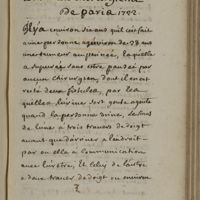 de paris 1702
Il y a environ six ans qu'il s'est fait
a une personne agée environ de 28 ans
une tumeur au perinée, laquelle
a suppurée sans estre pansée par
aucun chirurgien, dont il en est
resté deux fistules, par les
quelles l'urine sort goute a goute
quand la personne urine, le trou
de l'une a trois travers de doigt
avant que d'arriver a l'endroit
par ou elle a communication
avec l'uretre, et celuy de l'autre
a deux travers de doigt ou environ